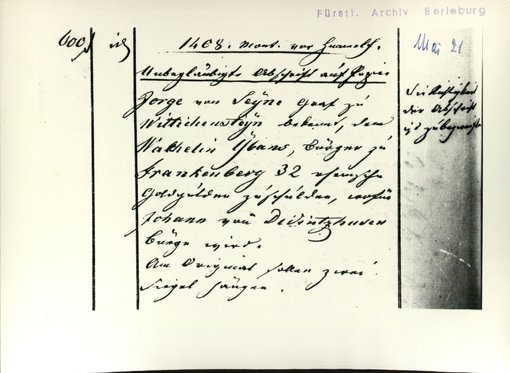 Fürstl. Archiv Berleburg
600
1408. Mont. vor Himelf.
Mai 21
Unbeglaubigte Abschrift auf Papier
Jorge von Seyne Graf zu
Wittichensteyn bekennt, dem
Bürger zu
Frankenberg 32 rheinische
Goldgulden zu schulden, wofür
Johann von
Bürge wird.
Am Original sollen zwei
Siegel hängen.
Die Richtigkeit
der Abschrift
ist zu bezweifeln